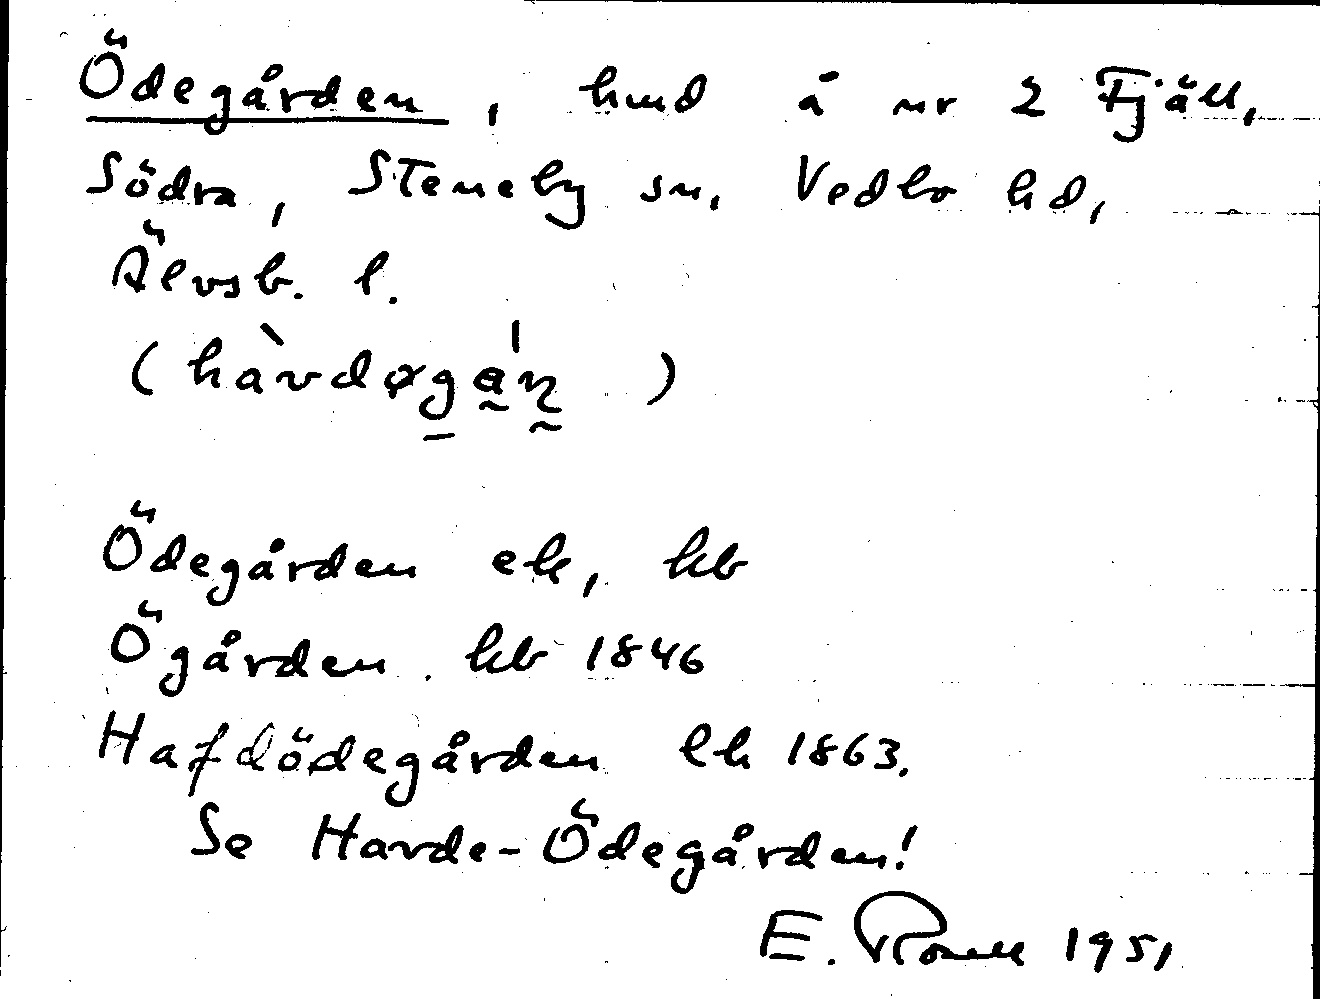 Ödegården, hmd å nr 2 Fjäll,
Södra, Steneby sn, Vedbo hd,
Älvsb. l.
(hàvdøgán)
Ödegården ek, kb
Ögården. kb 1846
Hafdödegården lh 1863.
Se Havde-Ödegården!
E. Rosell 1951